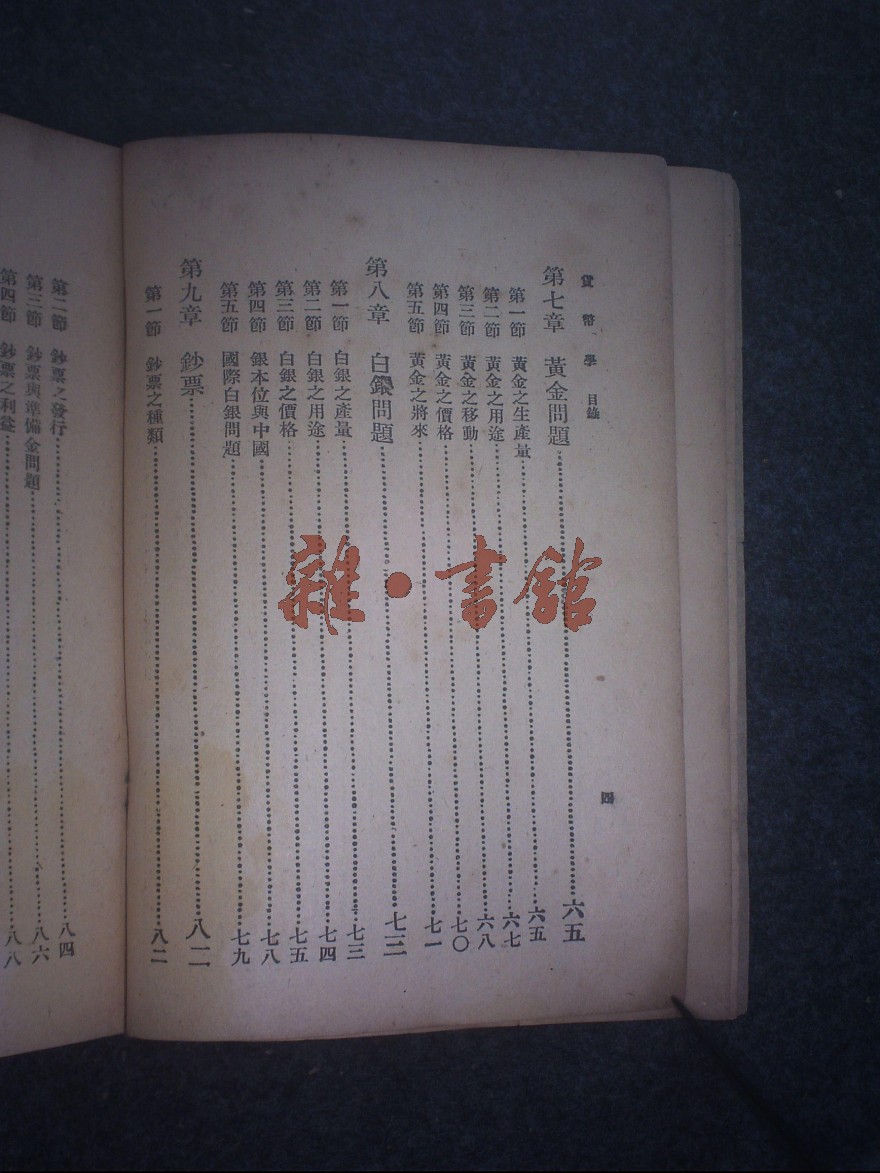 貨幣學 目錄
第七章 黃金問題 六五
第一節 黃金之生產量 六五
第二節 黃金之用途 六七
第三節 黃金之移動 六八
第四節 黃金之價格 七〇
第五節 黃金之將來 七一
第八章 白銀問題 七三
第一節 白銀之產量 七三
第二節 白銀之用途 七四
第三節 白銀之價格 七五
第四節 銀本位與中國 七八
第五節 國際白銀問題 七九
第九章 鈔票 八二
第一節 鈔票之種類 八二
四
第二節 鈔票之發行 八四
第三節 鈔票與準備金問題 八六
第四節 鈔票之利益 八八
雜·書館